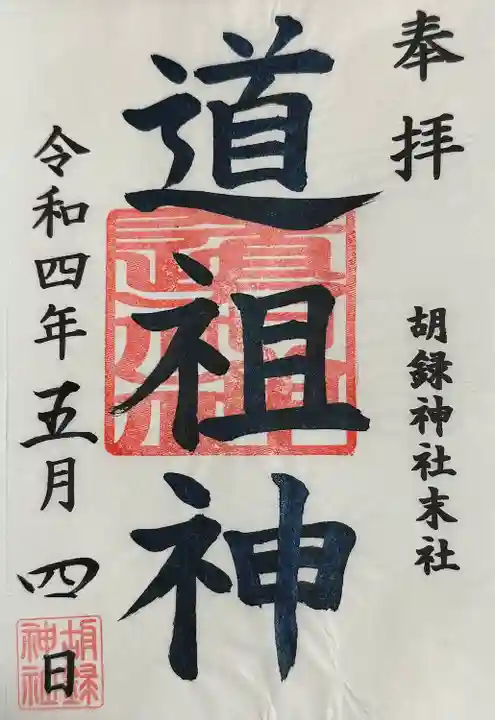 奉拝
胡録神社末社
道祖神
令和四年五月四日
胡録
神社